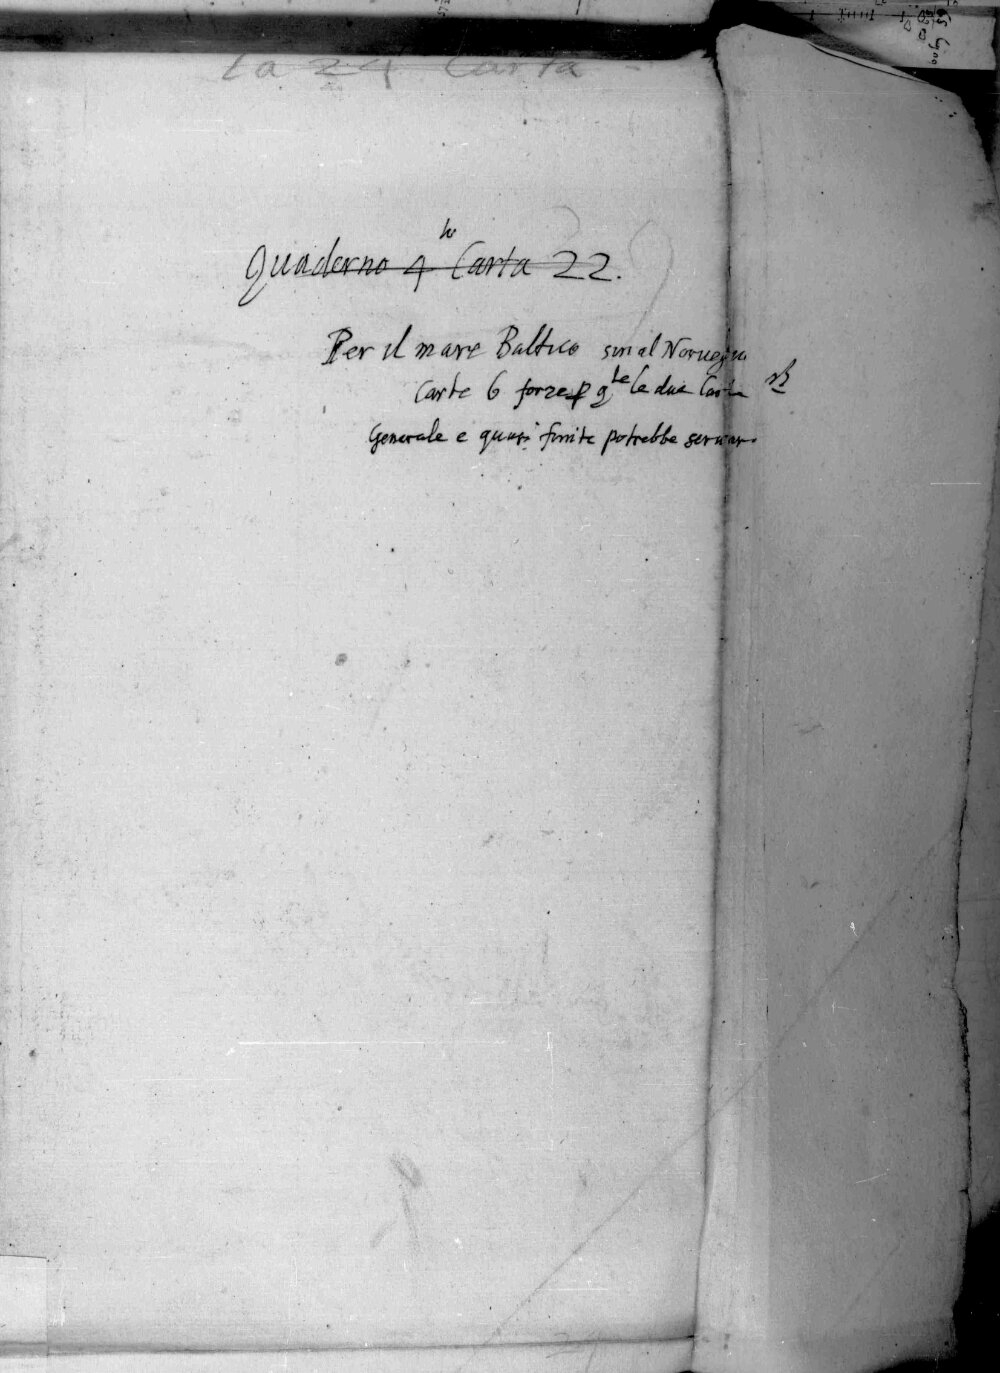 La 24 Carta -
Quaderno 4to Carta 22.
Per il mare Baltico sin al Noruegia
Carte 6 forze p qte le due Carte
Generale e quasi finite potrebbe seruar.